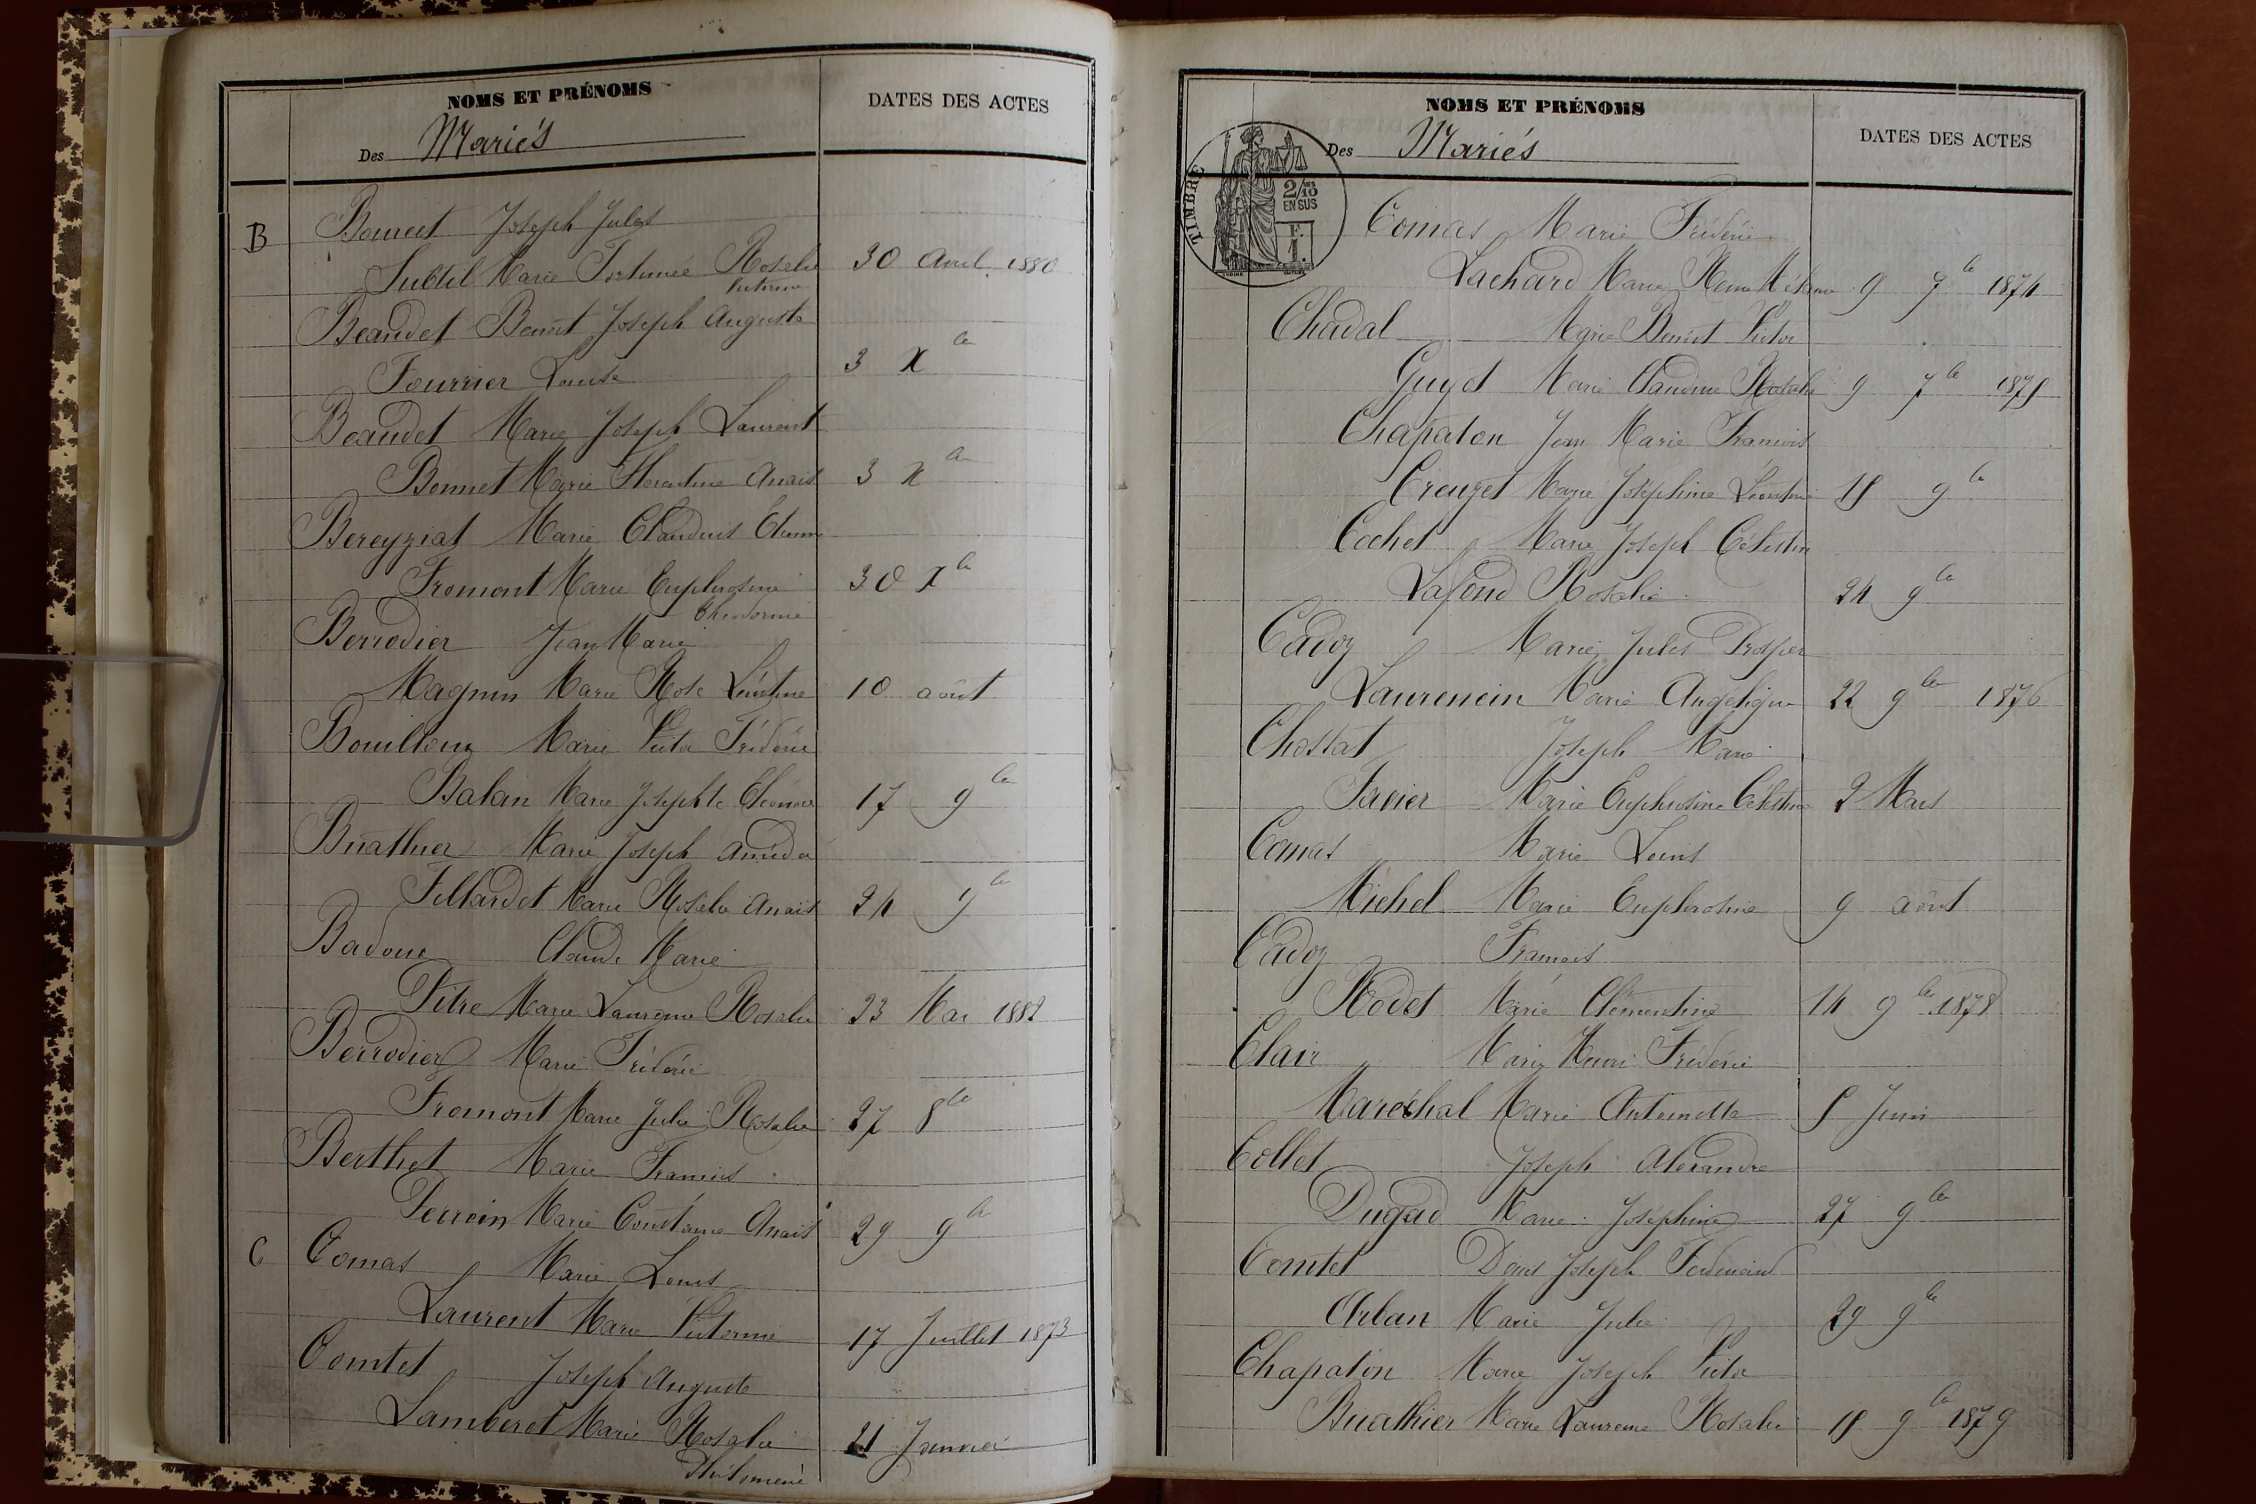 NOMS ET PRÉNOMS
Des Mariés
DATES DES ACTES
B Bouret Joseph Jules
Subtil Marie Fortunée Rosalie 30 Avril 1880
Victorine
Beaudet Benoit Joseph Auguste
Fourrier Louise 3 Xbre
Beaudet Marie Joseph Laurent
Bonnet Marie Florentine Anaïs 3 Xbre
Bereyziat Marie Claudius Etienne
Fromont Marie Euphrosine 30 Xbre
Théodorine
Berrodier Jean Marie
Magnin Marie Rose Léontine 10 août
Bouilloux Marie Victor Frédéric
Balan Marie Josephte Eléonore 17 9bre
Buathier Marie Joseph Amédée
Fillardet Marie Rosalie Anaïs 24 9bre
Badoux Claude Marie
Pitre Marie Laurence Rosalie 23 Mai 1882
Berrodier Marie Frédéric
Fromont Marie Julie Rosalie 27 8bre
Berthet Marie François
Perrein Marie Constance Anaïs 29 9bre
C Comas Marie Louis
Laurent Marie Victorine 17 Juillet 1873
Comtet Joseph Auguste
Lamberet Marie Rosalie 21 Janvier
Philomène
NOMS ET PRÉNOMS
Des Mariés
DATES DES ACTES
TIMBRE
2/10
EN SUS
F.
1.
Comas Marie Frédéric
Lachard Marie Reine Mélanie 9 7bre 1874
Chadal Marie Benoit Victor
Guyot Marie Claudine Rosalie 9 7bre 1875
Chapaton Jean Marie François
Creuzet Marie Joséphine Léontine 18 9bre
Cochet Marie Joseph Célestin
Lafond Rosalie 24 9bre
Cadoz Marie Jules Prosper
Laurencin Marie Angélique 22 9bre 1876
Chostat Joseph Marie
Favier Marie Euphrosine Célestine 2 Mars
Comas Marie Louis
Michel Marie Euphrosine 9 août
Cadoz François
Rodet Marie Clémentine 14 9bre 1878
Clair Marie Henri Frédéric
Maréchal Marie Antoinette 5 Juin
Collet Joseph Alexandre
Dugad Marie Joséphine 27 9bre
Comtet Denis Joseph Ferdinand
Orban Marie Julie 29 9bre
Chapaton Marie Joseph Victor
Buathier Marie Laurence Rosalie 18 9bre 1879